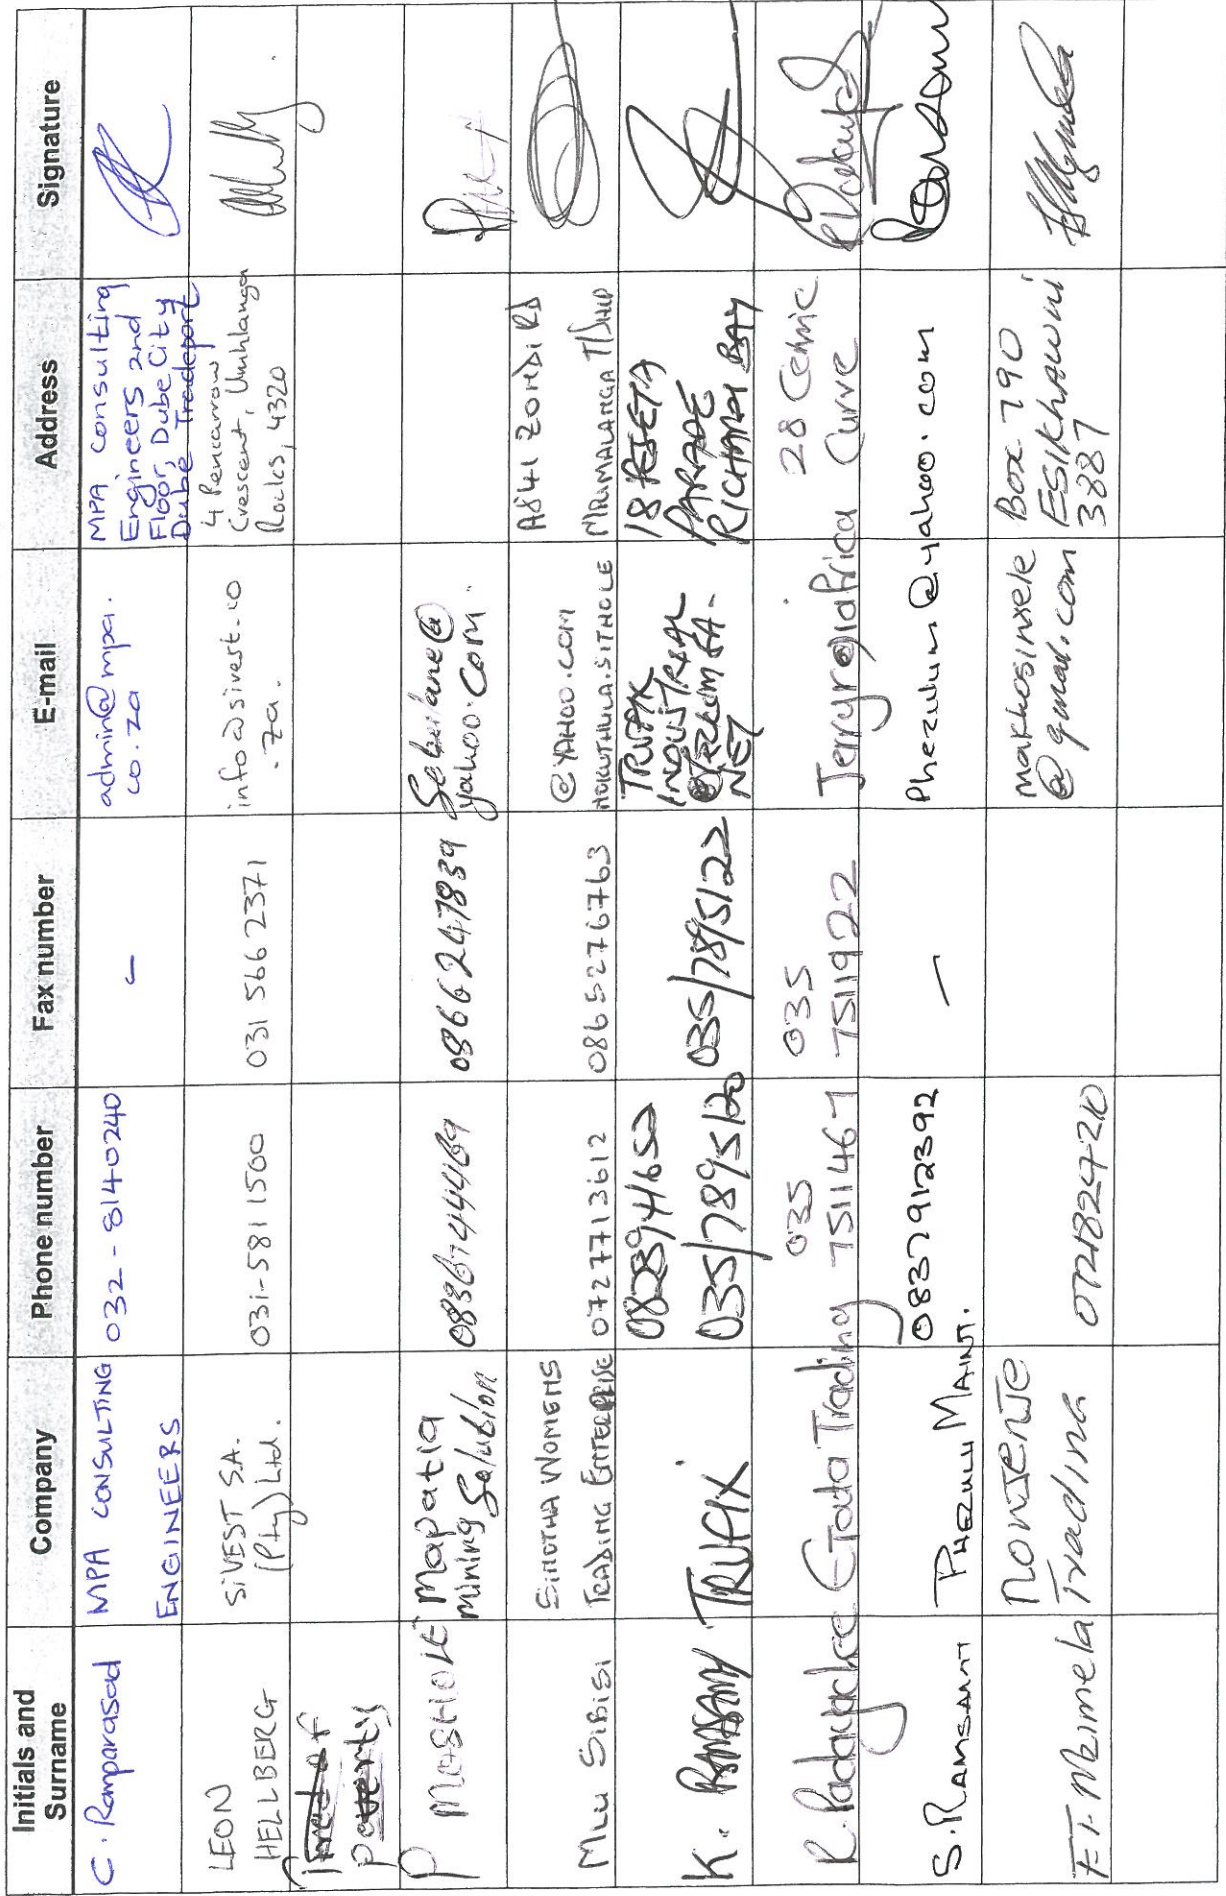 Initials and
Surname
Company
Phone number
Fax number
E-mail
Address
Signature
C. Ramparasad
MPA CONSULTING
ENGINEERS
032 - 8140240
-
admin@mpa.
co.za
MPA Consulting
Engineers 2nd
Floor, Dube City
Dube Tradeport
LEON
HELLBERG
SiVEST S.A.
(Pty) Ltd.
031-581 1500
031 566 2371
info@sivest.co
.za.
4 Pencarrow
Crescent, Umhlanga
Rocks, 4320
Tired of
poverty
P MASHOLE
Mapatla
mining Solution
0836744469
0866247839
yahoo.com.
MLU SIBISI
SINOTHA WOMENS
TRADING ENTERPRISE
0727713612
0865276763
@YAHOO.COM
NOKUTHULA.SITHOLE
A841 ZONDI RD
MADAMALANGA T/SHIP
K.
TRUFIX
082894652
035/7895120
035/7895122
TRUFIX
INDUSTRIAL
@TELKOMSA.
NET
18
PARADE
RICHARDS BAY
R. Padayachee
Etada Trading
035
7511467
035
7511922
Jerryr@iafrica
28
Curve
S. RAMSAMY
PHEZULU MAINT.
0837912392
-
Phezulum@yahoo.com
F.T. Mzimela
NONJENJE
Trading
0721824720
makhosinsele
@gmail.com
Box 790
ESIKHAWINI
3887